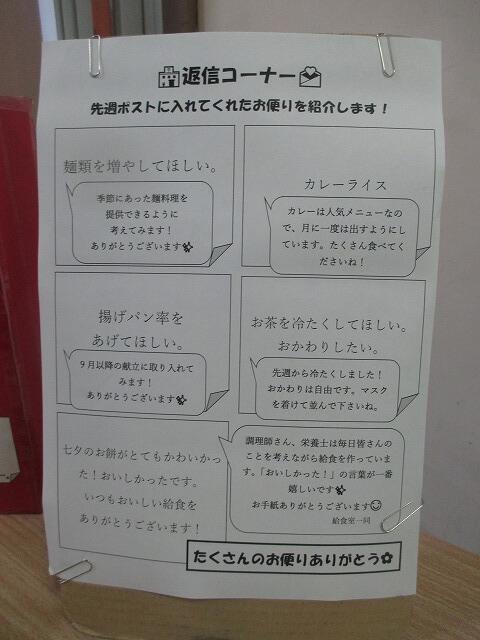 返信コーナー
先週ポストに入れてくれたお便りを紹介します！
麺類を増やしてほしい。
季節にあった麺料理を
提供できるように
考えてみます！
ありがとうございます
カレーライス
カレーは人気メニューなの
で、月に一度は出すようにし
ています。たくさん食べてく
ださいね！
揚げパン率を
あげてほしい。
９月以降の献立に取り入れて
みます！
ありがとうございます
お茶を冷たくしてほしい。
おかわりしたい。
先週から冷たくしました！
おかわりは自由です。マスク
を着けて並んで下さいね。
七夕のお餅がとてもかわいかっ
た！おいしかったです。
いつもおいしい給食を
ありがとうございます！
調理師さん、栄養士は毎日皆さんの
ことを考えながら給食を作っていま
す。「おいしかった！」の言葉が一番
嬉しいです
お手紙ありがとうございます
給食室一同
たくさんのお便りありがとう